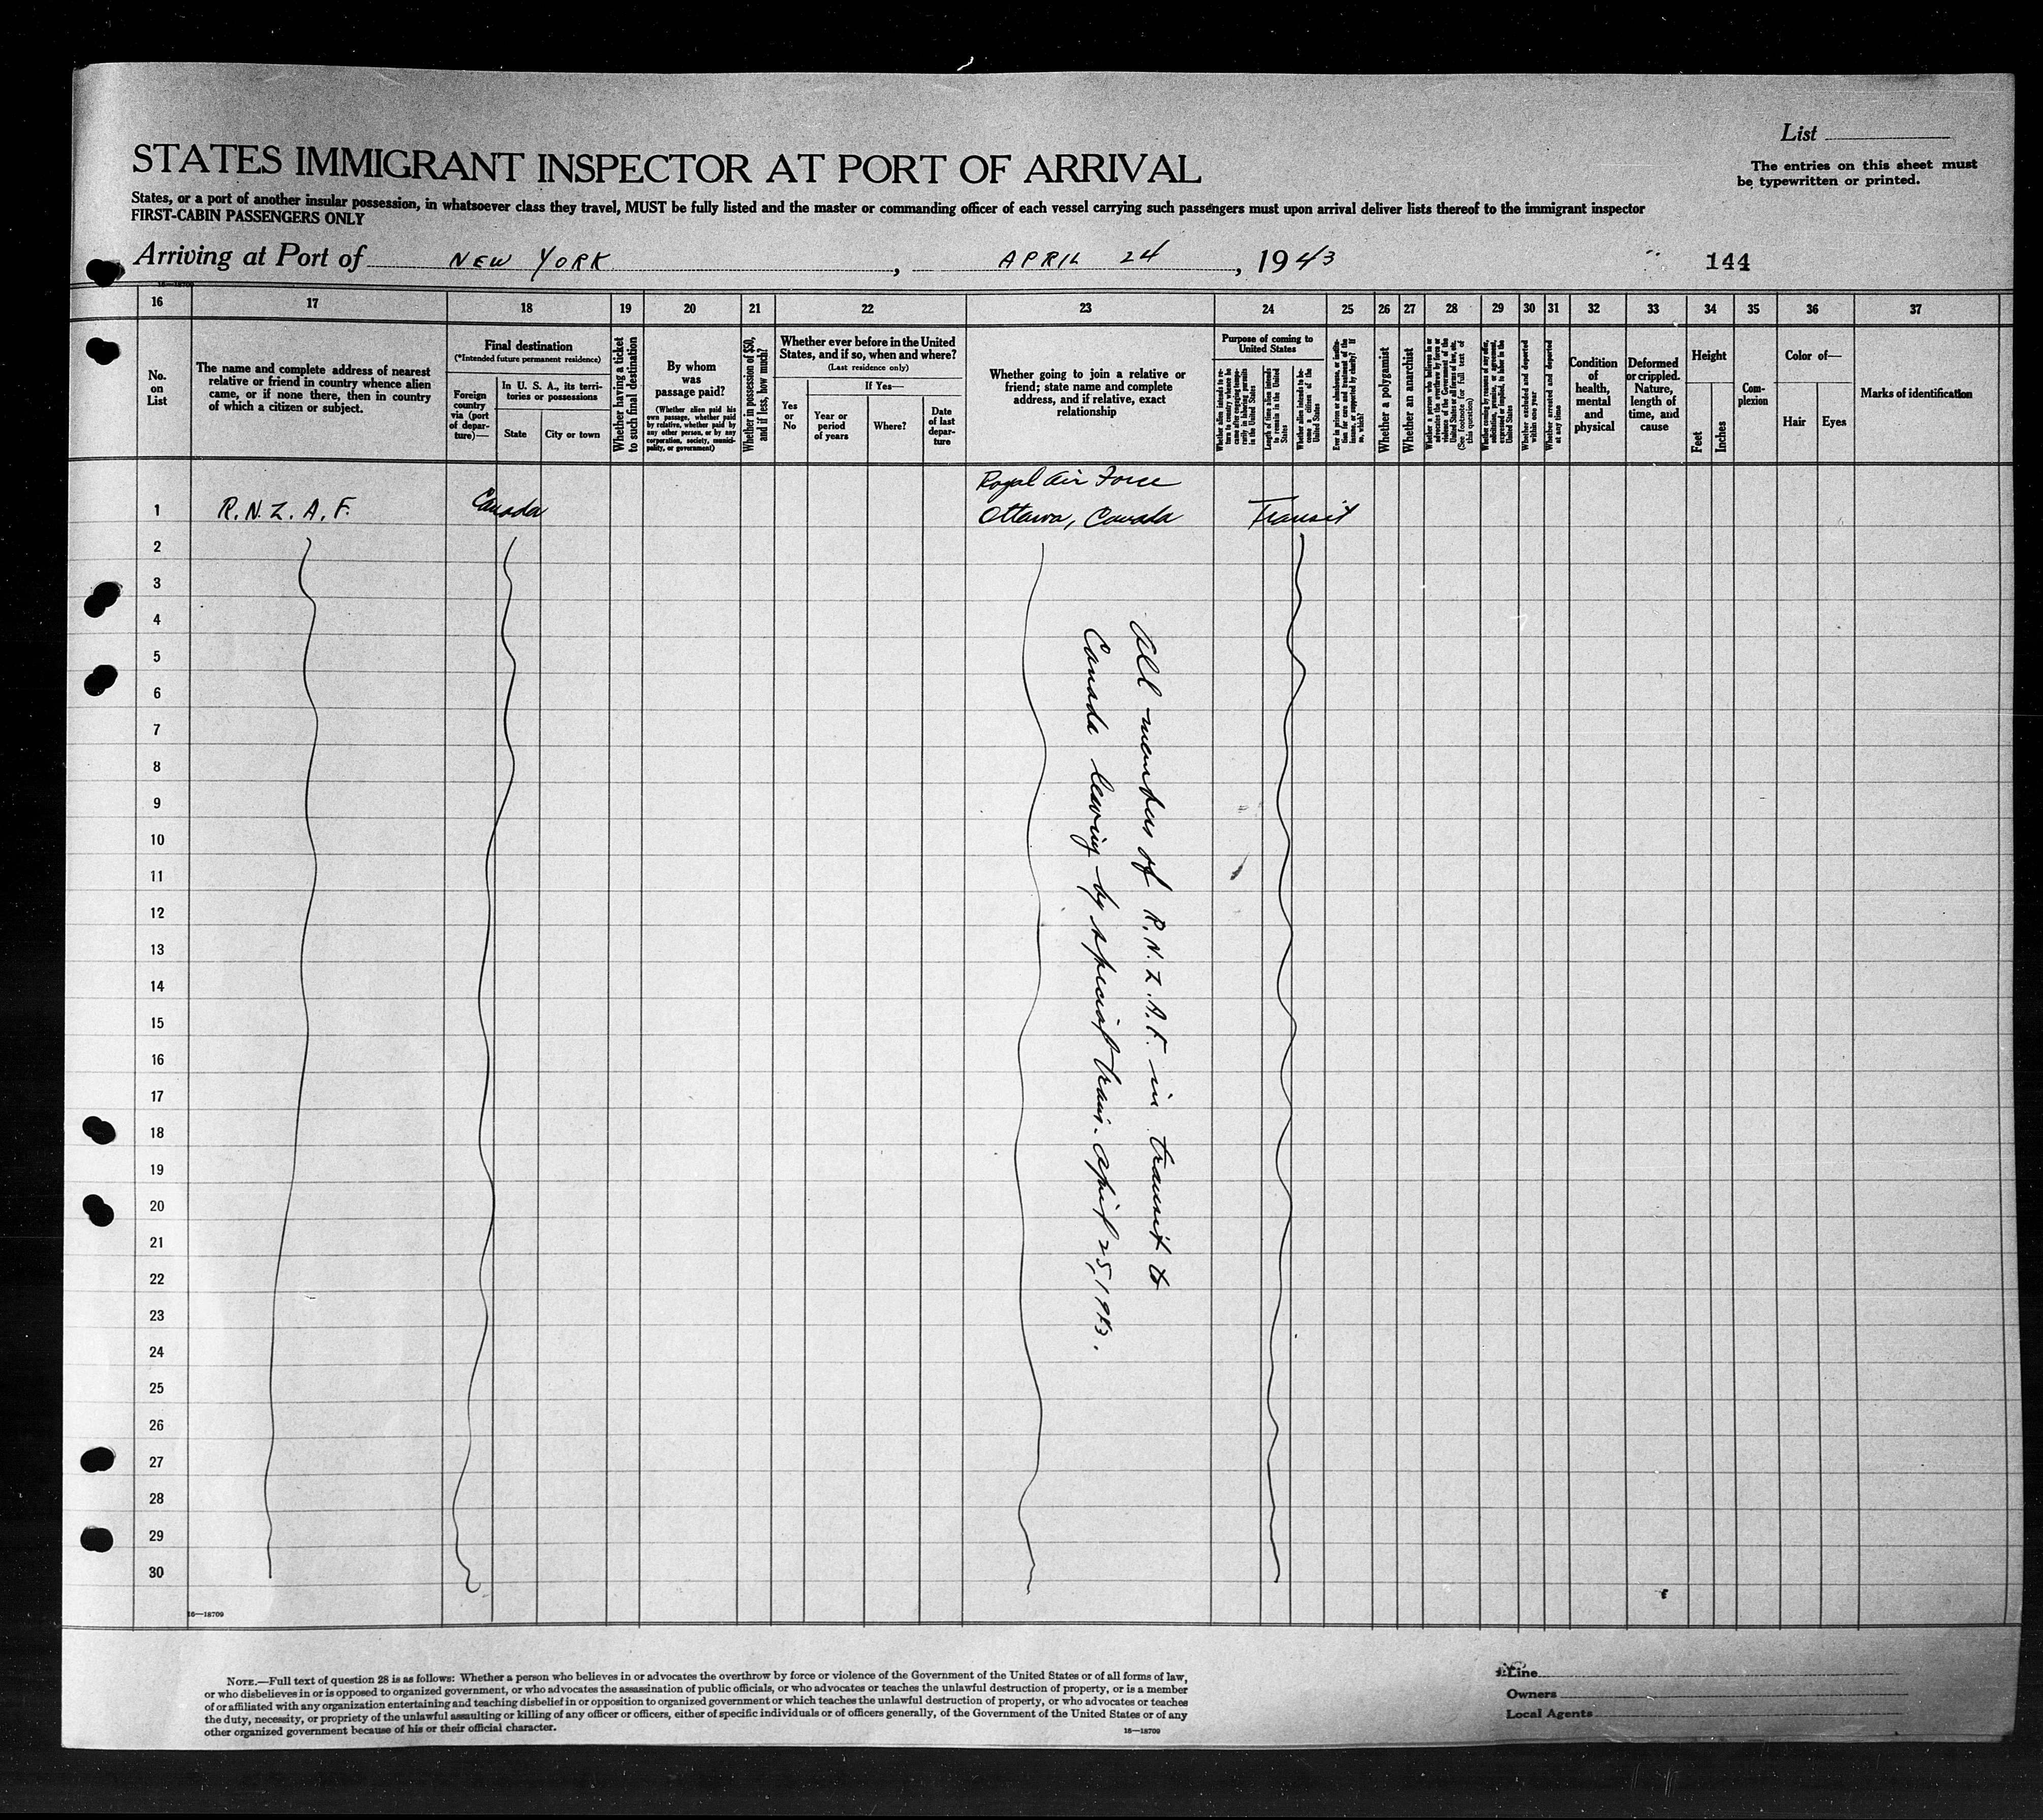 List
STATES IMMIGRANT INSPECTOR AT PORT OF ARRIVAL
The entries on this sheet must
be typewritten or printed.
States, or a port of another insular possession, in whatsoever class they travel, MUST be fully listed and the master or commanding officer of each vessel carrying such passengers must upon arrival deliver lists thereof to the immigrant inspector
FIRST-CABIN PASSENGERS ONLY
Arriving at Port of NEW YORK, APRIL 24, 1943
144
16 17 18 19 20 21 22 23 24 25 26 27 28 29 30 31 32 33 34 35 36 37
No.
on
List
The name and complete address of nearest
relative or friend in country whence alien
came, or if none there, then in country
of which a citizen or subject.
Final destination
(*Intended future permanent residence)
Foreign
country
via (port
of depar-
ture)—
In U. S. A., its terri-
tories or possessions
State
City or town
Whether having a ticket
to such final destination
By whom
was
passage paid?
(Whether alien paid his
own passage, whether paid
by relative, whether paid by
any other person, or by any
corporation, society, munici-
pality, or government)
Whether in possession of $50,
and if less, how much?
Whether ever before in the United
States, and if so, when and where?
(Last residence only)
Yes
or
No
If Yes—
Year or
period
of years
Where?
Date
of last
depar-
ture
Whether going to join a relative or
friend; state name and complete
address, and if relative, exact
relationship
Purpose of coming to
United States
Whether alien intends to re-
turn to country whence he
came after engaging tempo-
rarily in laboring pursuits
in the United States
Length of time alien intends
to remain in the United
States
Whether alien intends to be-
come a citizen of the
United States
Ever in prison or almshouse, or institu-
tion for care and treatment of the
insane, or supported by charity? If
so, which?
Whether a polygamist
Whether an anarchist
Whether a person who believes in or
advocates the overthrow by force or
violence of the Government of the
United States or all forms of law, etc.
(See footnote for full text of
this question)
Whether coming by reason of any offer,
solicitation, promise, or agreement,
expressed or implied, to labor in the
United States
Whether excluded and deported
within one year
Whether arrested and deported
at any time
Condition
of
health,
mental
and
physical
Deformed
or crippled.
Nature,
length of
time, and
cause
Height
Feet
Inches
Com-
plexion
Color of—
Hair
Eyes
Marks of identification
Royal Air Force
1 R.N.Z.A.F. Canada Ottawa, Canada Transit
2
3
4
5
6
7
8
9
10
11
12
13
14
15
16
17
18
19
20
21
22
23
24
25
26
27
28
29
30
All members of R.N.Z.A.F. in transit to
Canada leaving by special train. April 25, 1943.
16—18709
NOTE.—Full text of question 28 is as follows: Whether a person who believes in or advocates the overthrow by force or violence of the Government of the United States or of all forms of law,
or who disbelieves in or is opposed to organized government, or who advocates the assassination of public officials, or who advocates or teaches the unlawful destruction of property, or is a member
of or affiliated with any organization entertaining and teaching disbelief in or opposition to organized government or which teaches the unlawful destruction of property, or who advocates or teaches
the duty, necessity, or propriety of the unlawful assaulting or killing of any officer or officers, either of specific individuals or of officers generally, of the Government of the United States or of any
other organized government because of his or their official character.
16—18709
Line
Owners
Local Agents